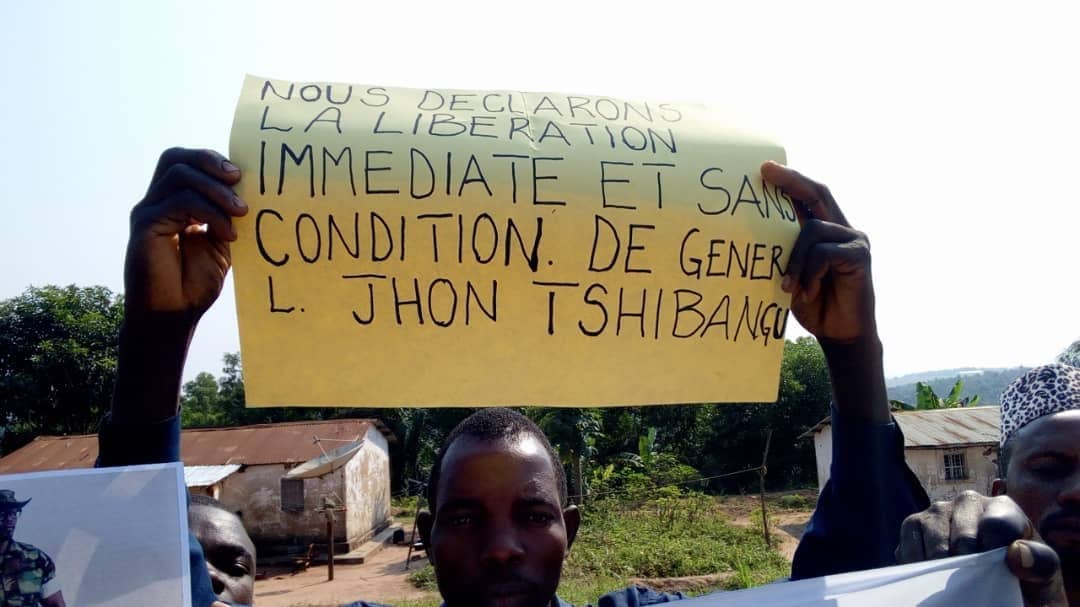 NOUS DECLARONS
LA LIBERATION
IMMEDIATE ET SANS
CONDITION. DE GENER
L. JHON TSHIBANGU